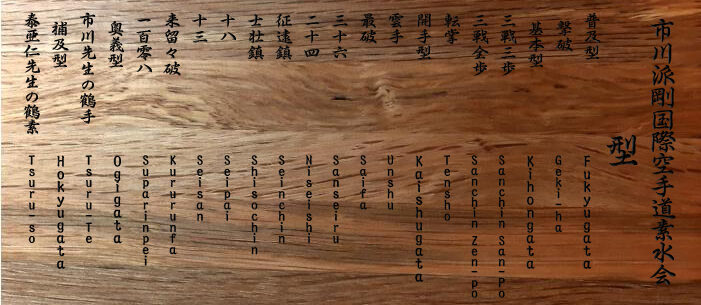 市川派剛国際空手道素水会
型
普及型 Fukyugata
撃破 Geki-ha
基本型 Kihongata
三戦三歩 Sanchin San-Po
三戦全歩 Sanchin Zen-po
転掌 Tensho
開手型 Kaishugata
雲手 Unshu
最破 Saifa
三十六 Sanseiru
二十四 Niseishi
征遠鎮 Seinchin
士壮鎮 Shisochin
十八 Seipai
十三 Seisan
来留々破 Kururunfa
一百零八 Suparinpei
奥義型 Ogigata
市川先生の鶴手 Tsuru-Te
補及型 Hokyugata
泰亜仁先生の鶴素 Tsuru-so